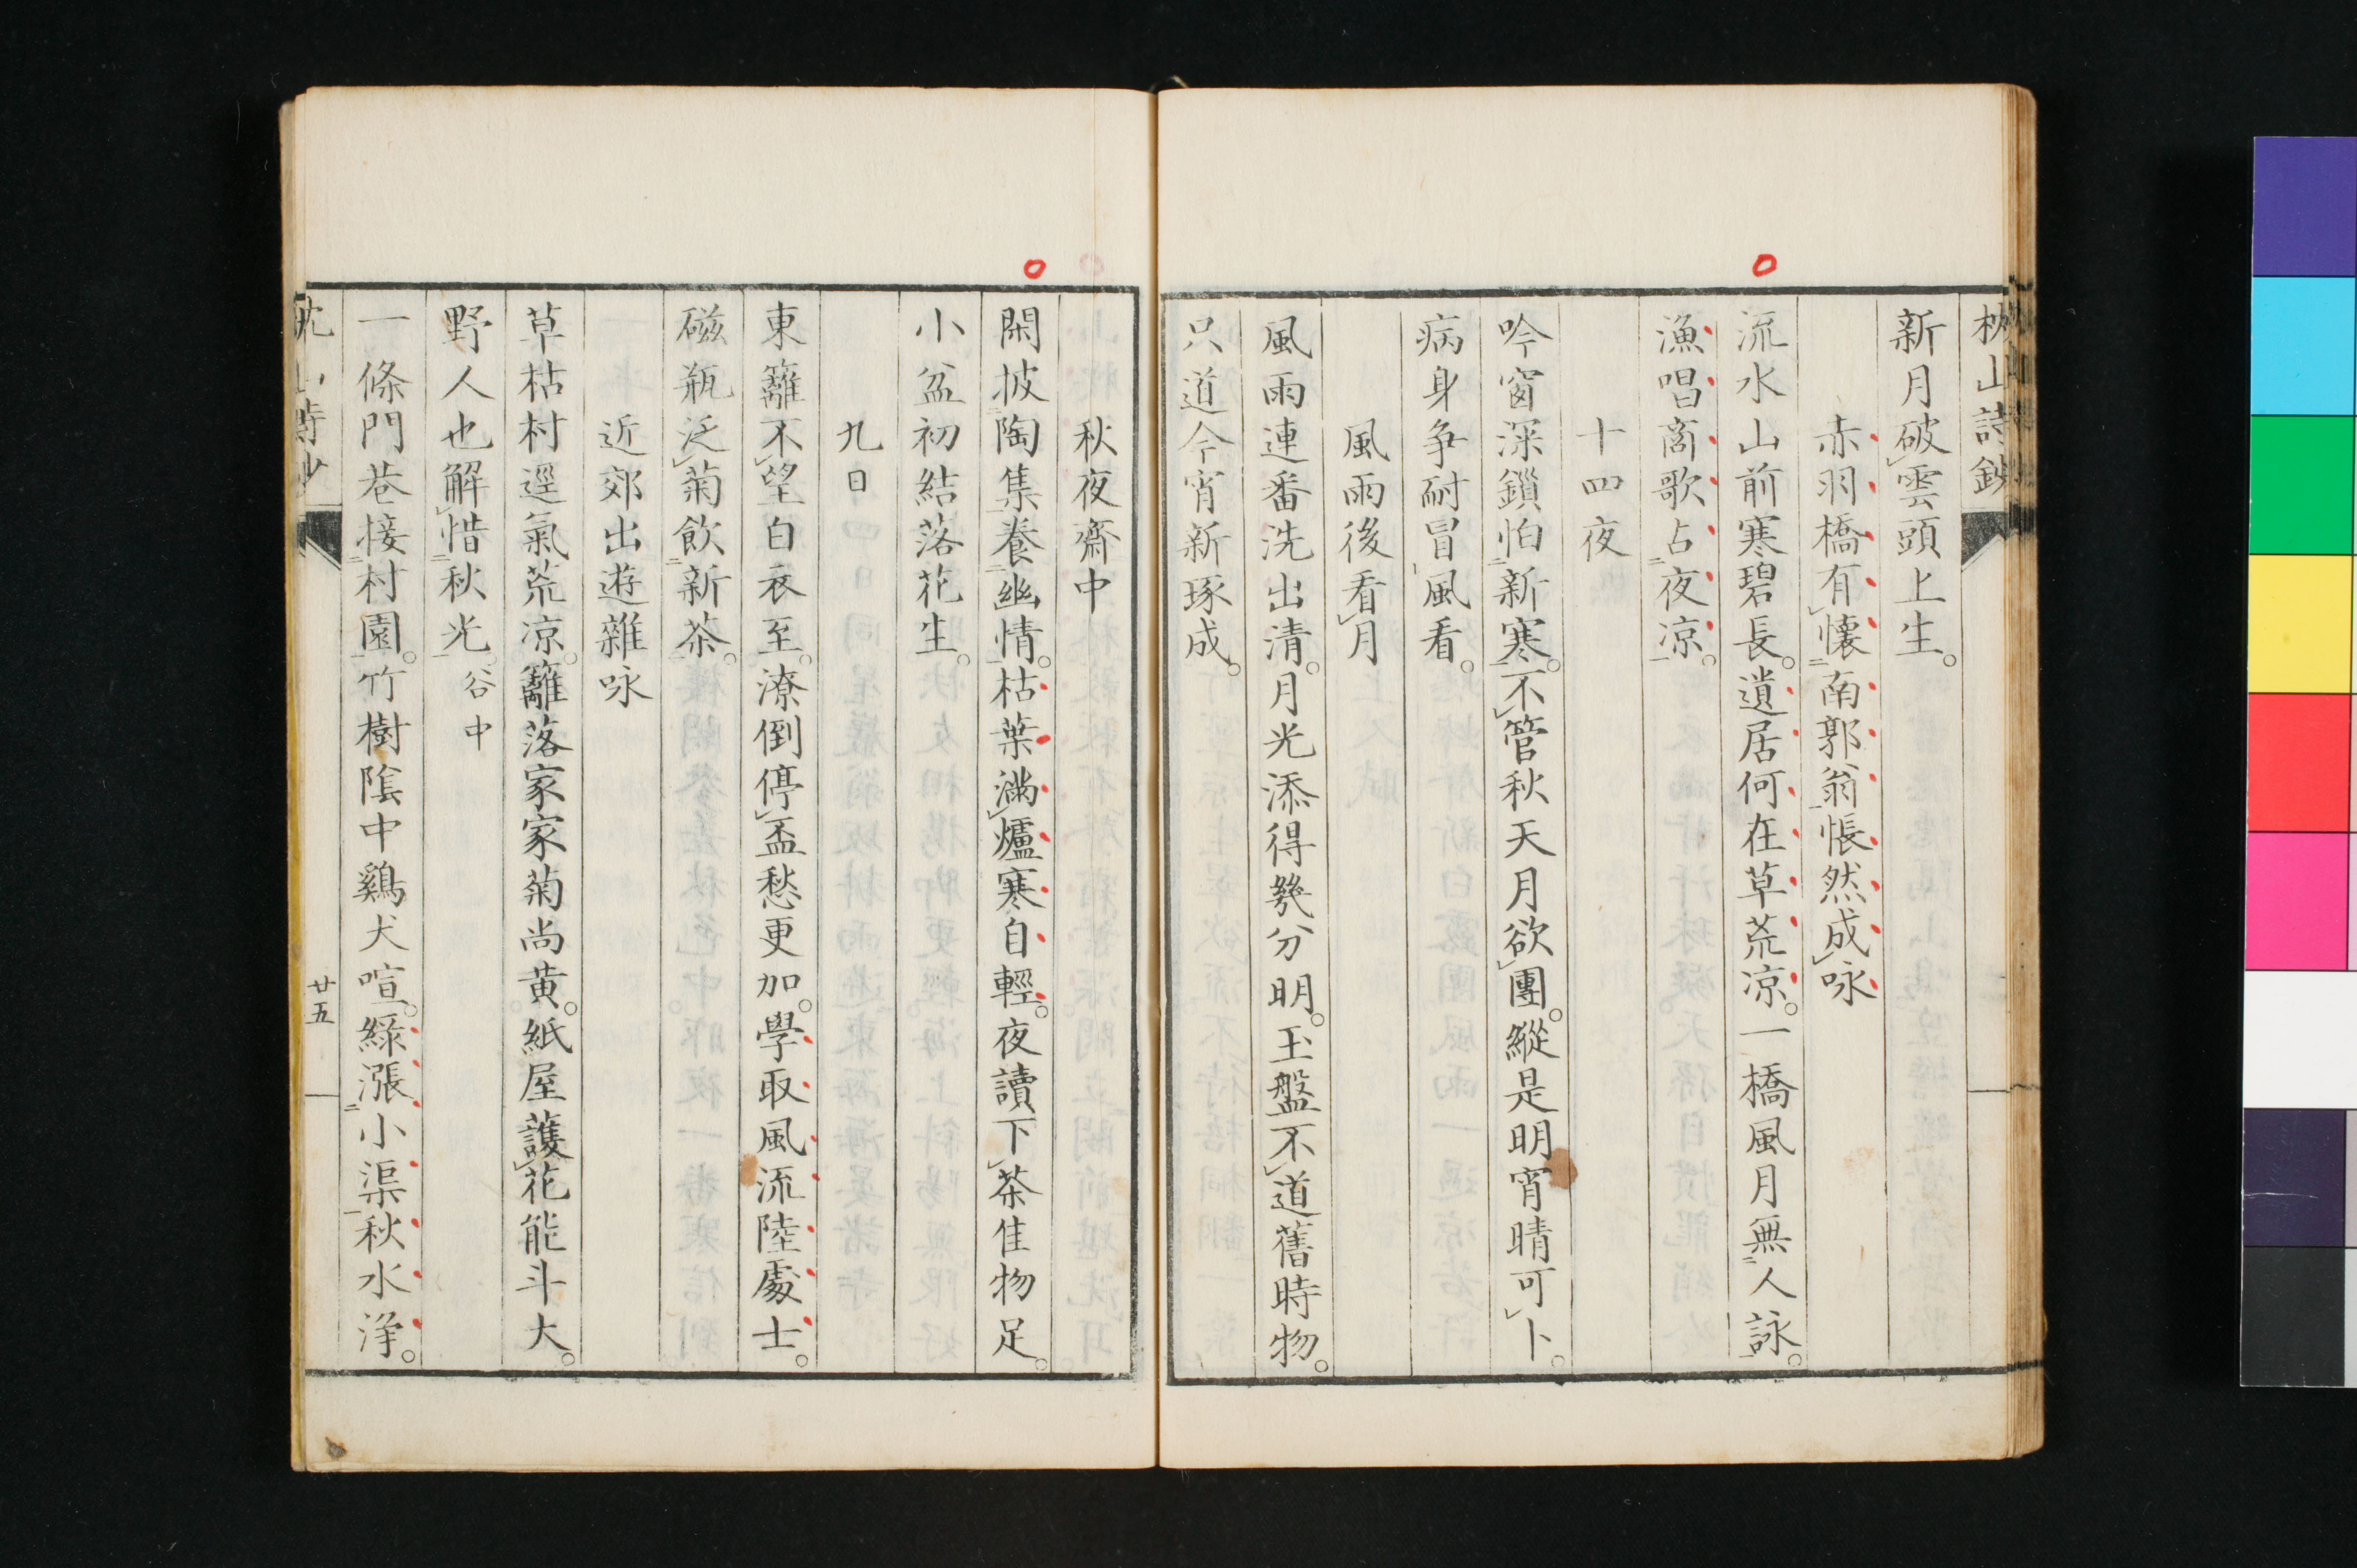 枕山詩鈔
新月破雲頭上生。
赤羽橋有懷南郭翁悵然成咏
流水山前寒碧長。遺居何在草荒凉。一橋風月無人詠。
漁唱商歌占夜凉。
十四夜
吟窗深鎖怕新寒。不管秋天月欲團。縱是明宵晴可卜。
病身争耐冒風看。
風雨後看月
風雨連番洗出清。月光添得幾分明。玉盤不道舊時物。
只道今宵新琢成。
秋夜齋中
閑披陶集養幽情。枯葉滿爐寒自輕。夜讀下茶佳物足。
小盆初結落花生。
九日
東籬不望白衣至。潦倒停盃愁更加。學取風流陸處士。
磁瓶泛菊飲新茶。
近郊出遊雜咏
草枯村逕氣荒凉。籬落家家菊尚黄。紙屋護花能斗大。
野人也解惜秋光。谷中
一條門巷接村園。竹樹陰中鷄犬喧。綠漲小渠秋水淨。
枕山詩鈔
廿五